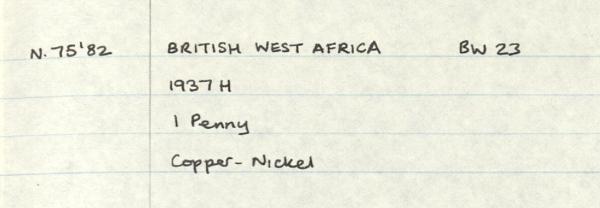 N. 75'82 BRITISH WEST AFRICA BW 23
1937 H
1 Penny
Copper-Nickel